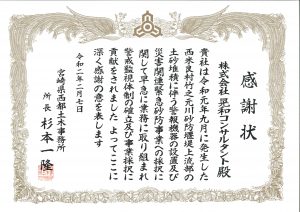 感謝状
株式会社 晃和コンサルタント殿
貴社は令和元年九月に発生した
西米良村竹之元川砂防堰堤上流部の
土砂堆積に伴う警報機器の設置及び
災害関連緊急砂防事業への採択に
関して早急に業務に取り組まれ
警戒監視体制の確立及び事業採択に
貢献をされました よってここに
深く感謝の意を表します
令和二年二月七日
宮崎県西都土木事務所
所長 杉本一隆